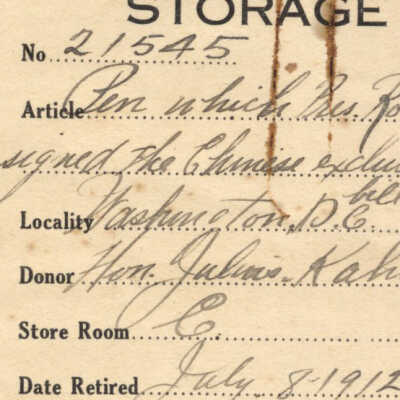 STORAGE
No 21545
Article Pen which Pres. Ro
signed the Chinese exclu
bill
Locality Washington, D.C.
Donor Hon. Julius Kah
Store Room C.
Date Retired July 8-1912